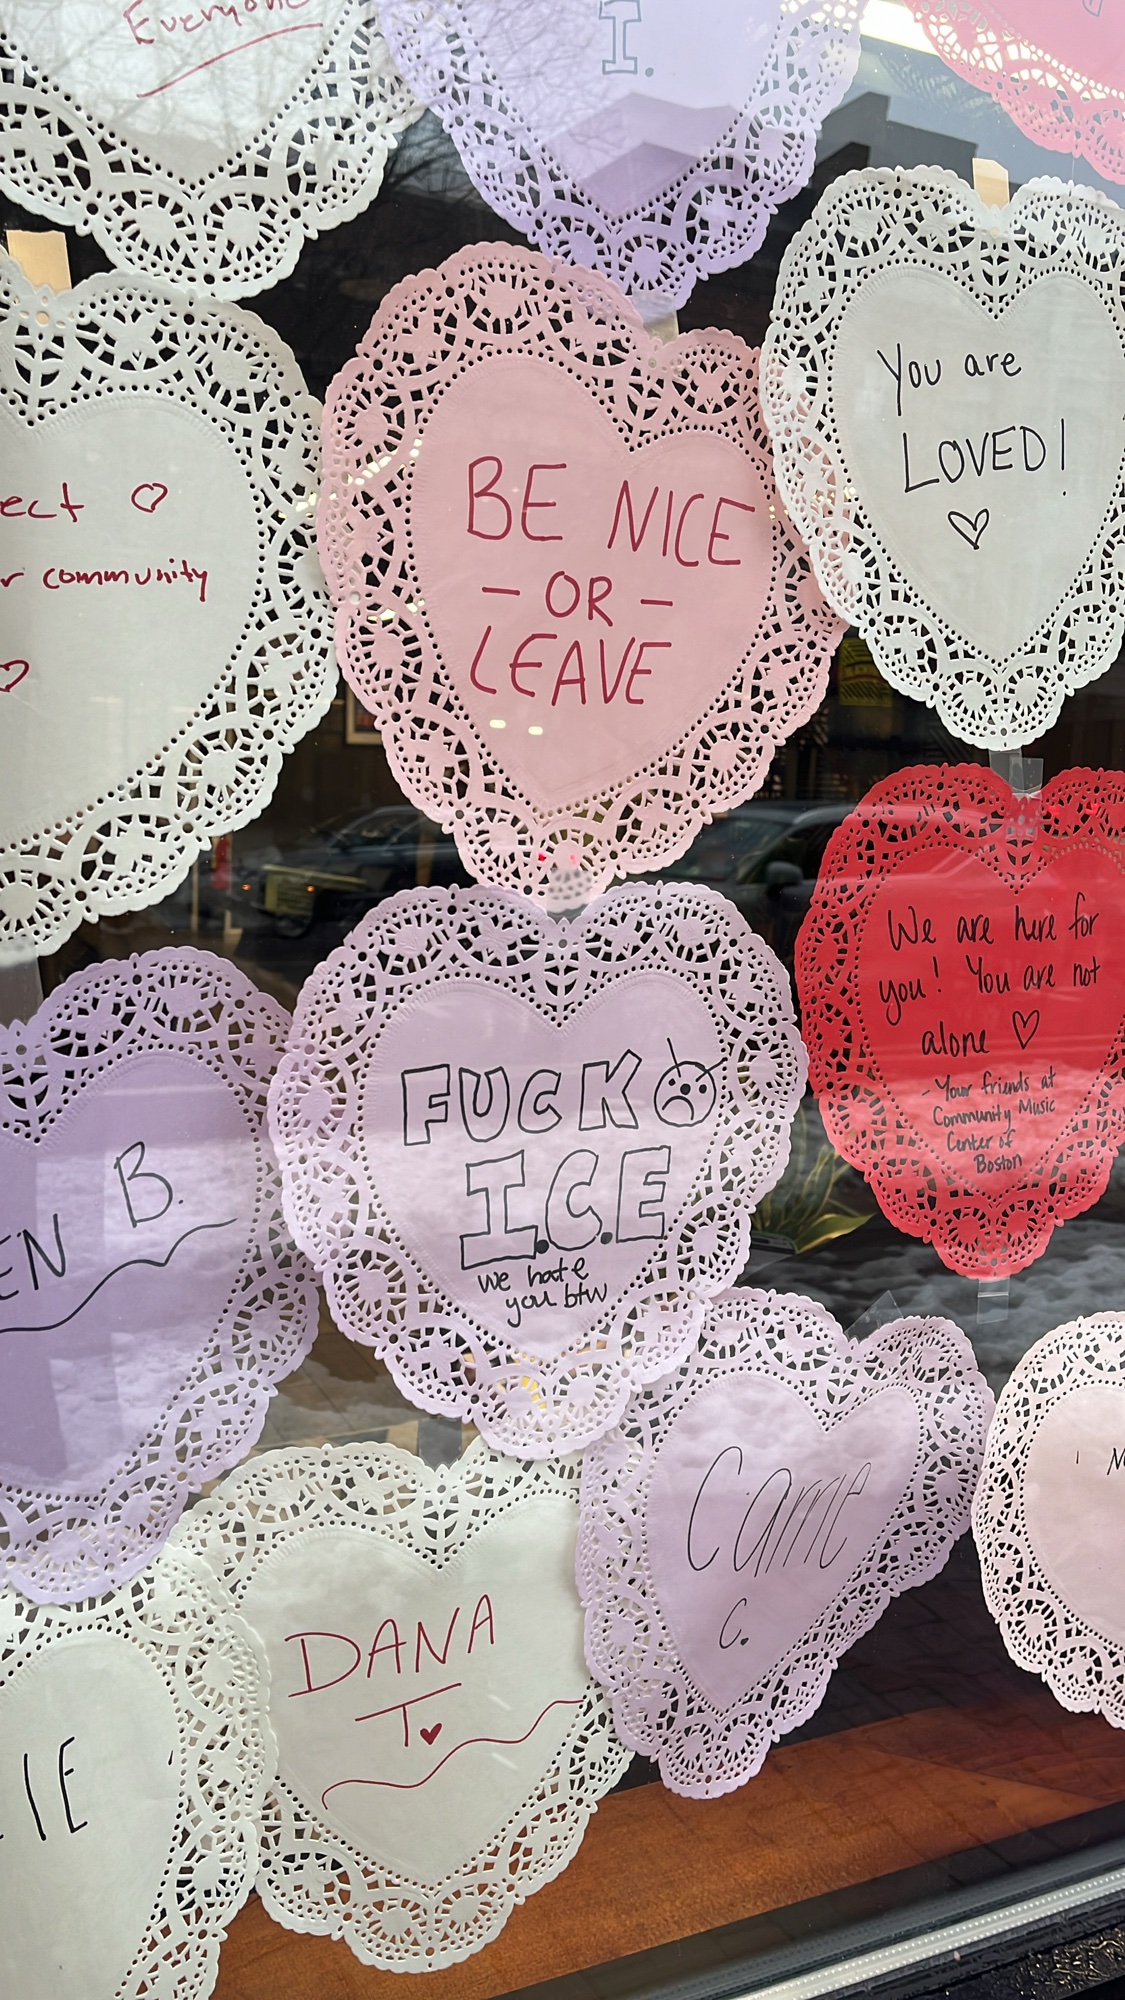 Everyone
I.
You are
LOVED!
BE NICE
- OR -
LEAVE
community
We are here for
you! You are not
alone
- Your friends at
Community Music
Center of
Boston
FUCK
I.C.E
we hate
you btw
B.
Carrie
C.
DANA
T